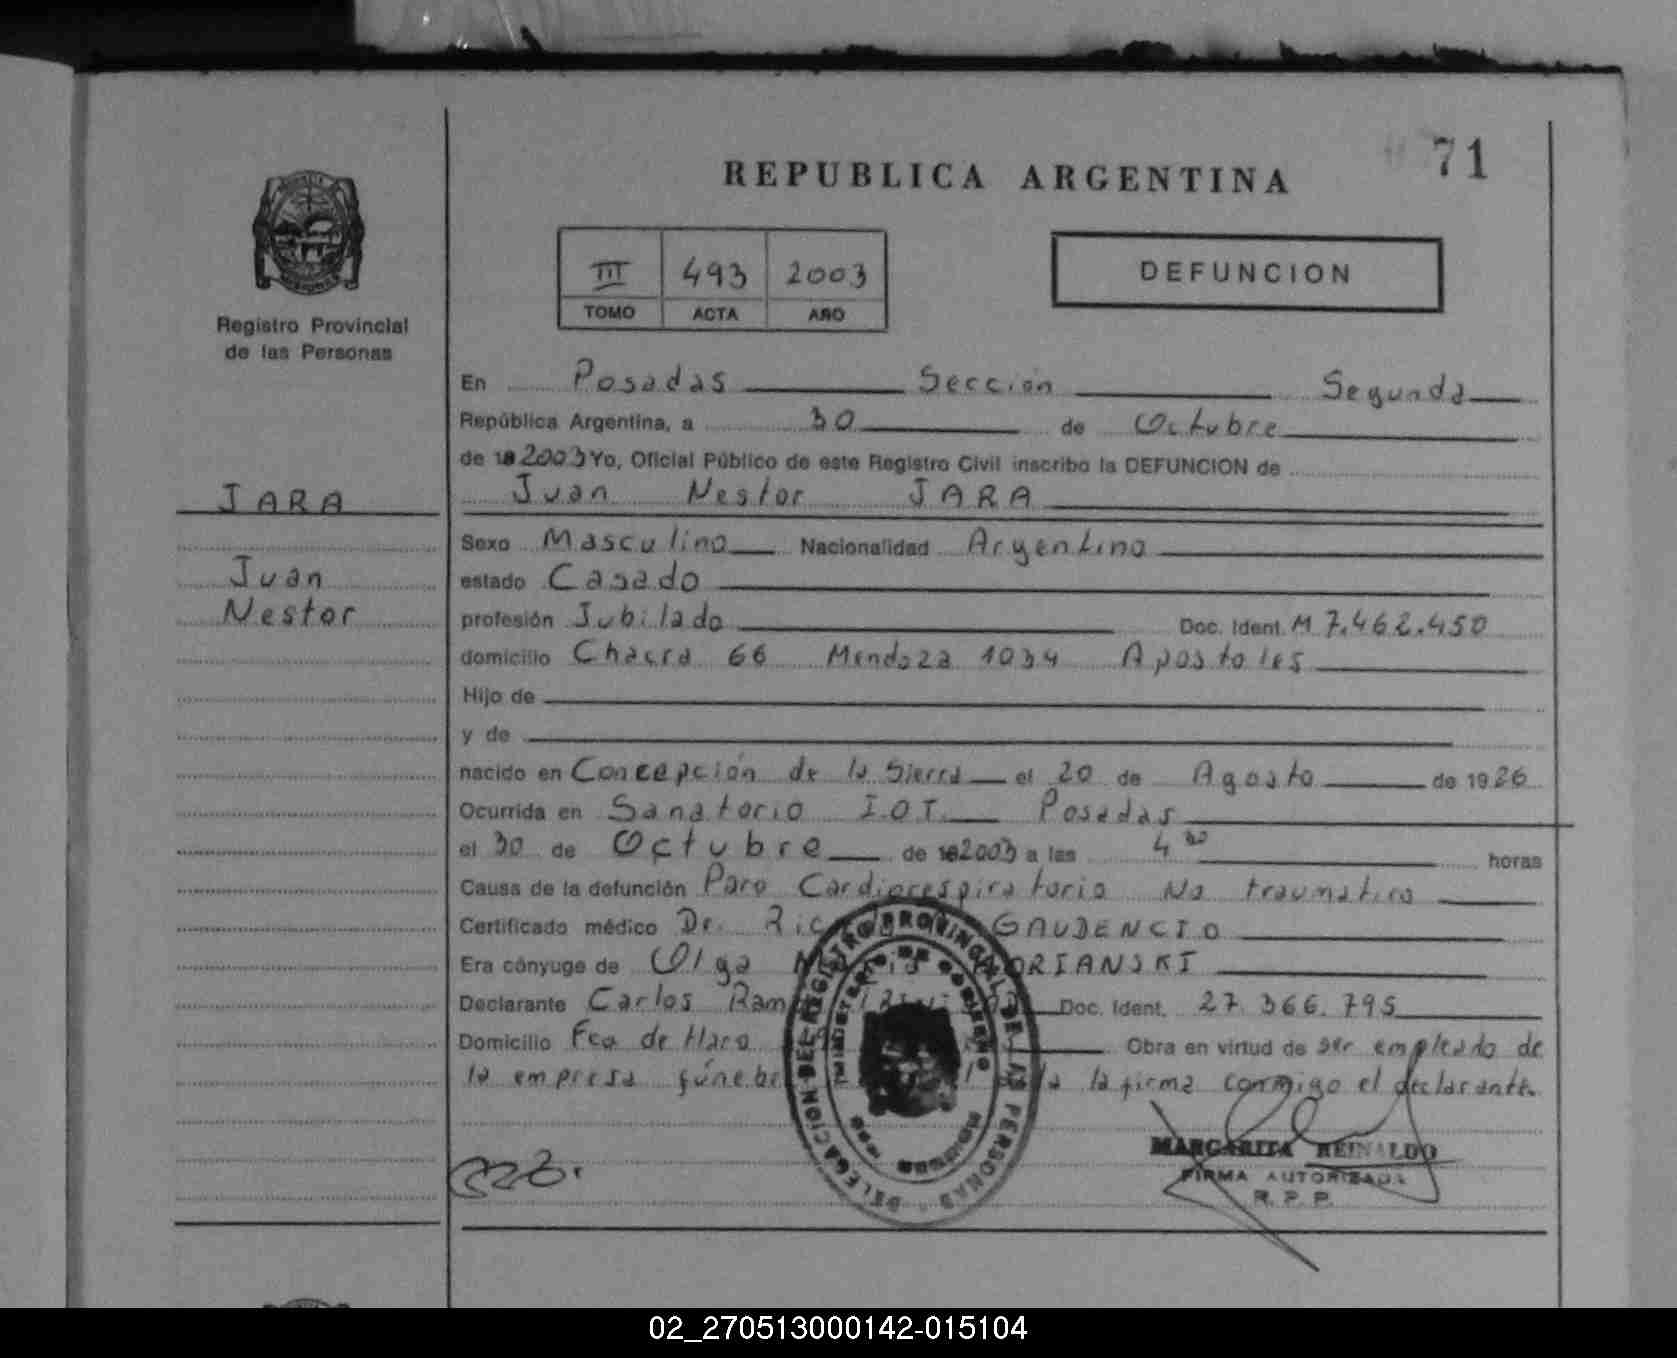 71
REPUBLICA ARGENTINA
III 493 2003
TOMO ACTA AÑO
DEFUNCION
Registro Provincial
de las Personas
JARA
Juan
Nestor
En Posadas Sección Segunda
República Argentina, a 30 de Octubre
de 2003 Yo, Oficial Público de este Registro Civil inscribo la DEFUNCION de
Juan Nestor JARA
Sexo Masculino Nacionalidad Argentino
estado Casado
profesión Jubilado Doc. Ident. M 7.462.450
domicilio Chacra 66 Mendoza 1034 Apostoles
Hijo de
y de
nacido en Concepción de la Sierra el 20 de Agosto de 1926
Ocurrida en Sanatorio I.O.T. Posadas
el 30 de Octubre de 2003 a las 4 horas
Causa de la defunción Paro Cardiorespiratorio No traumatico
Certificado médico Dr. GAUDENCIO
Era cónyuge de Olga
Declarante Carlos Doc. Ident. 27.366.795
Domicilio Fco de Haro Obra en virtud de ser empleado de
la empresa fúnebre la firma conmigo el declarante.
MARGARITA REINALDO
FIRMA AUTORIZADA
R. P. P.
DELEGACION DEL REGISTRO PROVINCIAL DE LAS PERSONAS
MINISTERIO DE GOBIERNO
02_270513000142-015104